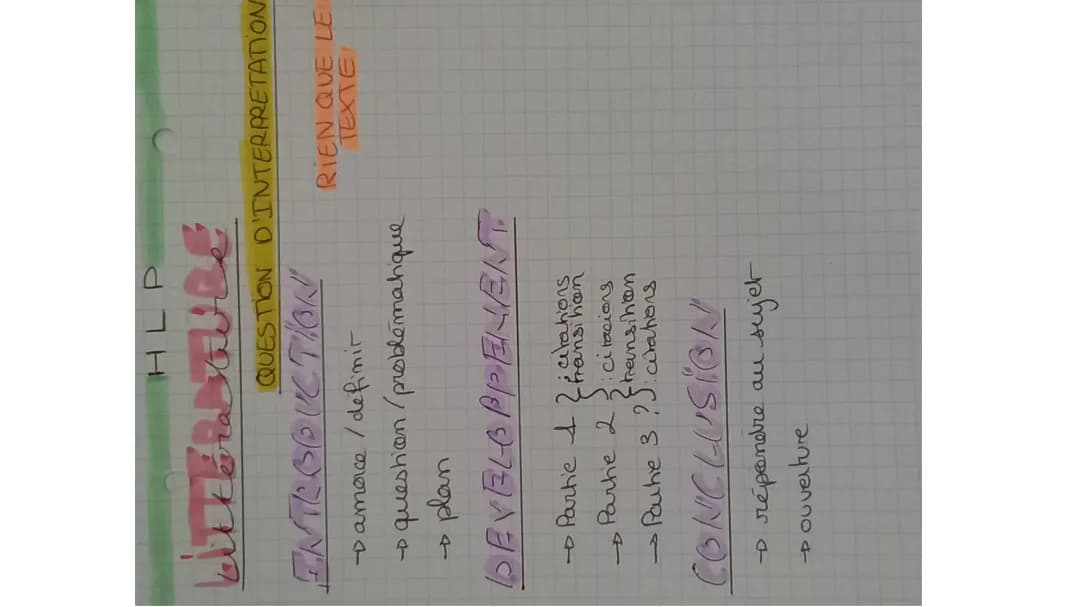 HLP
LITTERATURE
littérature
QUESTION D'INTERPRETATION
RIEN QUE LE
TEXTE
INTRODUCTION
→ amorce / définir
→ question / problématique
→ plan
DEVELOPPEMENT
→ Partie 1 } : citations
{ transition
→ Partie 2 } : citacions
{ transition
→ Partie 3 ? } : citations
CONCLUSION
→ répondre au sujet
→ ouverture